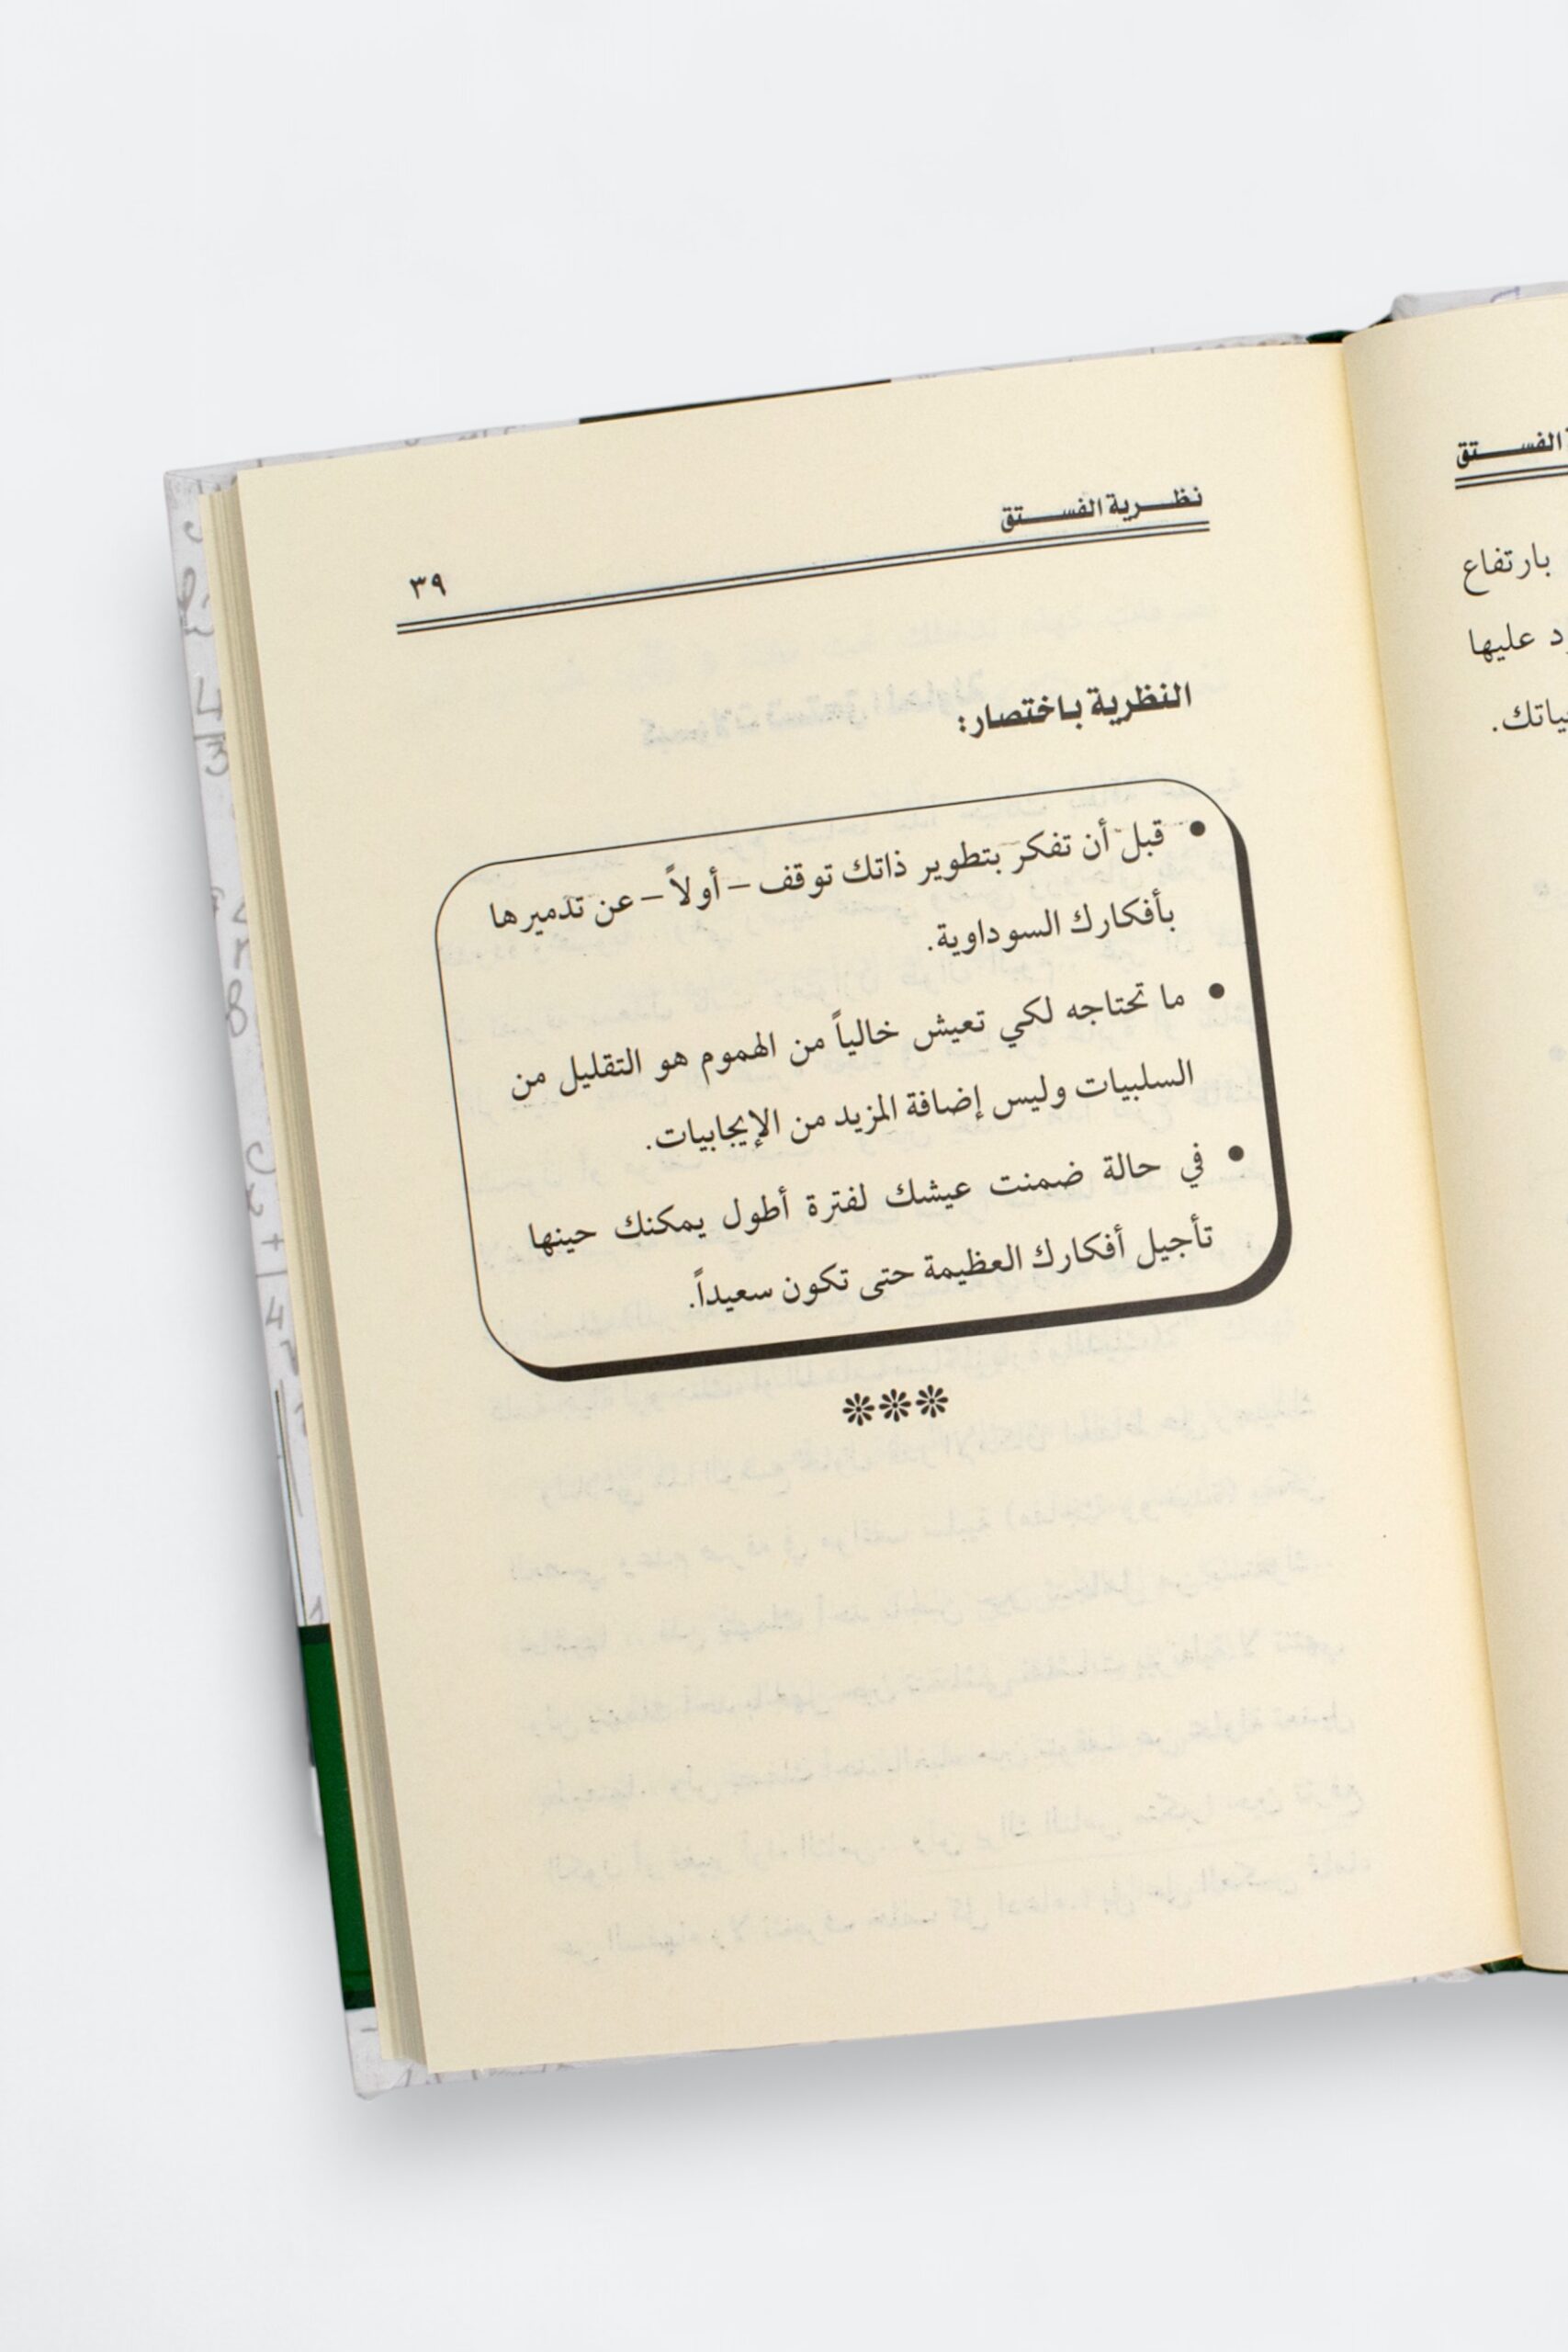 نظرية الفستق
٣٩
النظرية باختصار:
• قبل أن تفكر بتطوير ذاتك توقف – أولاً – عن تدميرها
بأفكارك السوداوية.
• ما تحتاجه لكي تعيش خالياً من الهموم هو التقليل من
السلبيات وليس إضافة المزيد من الإيجابيات.
• في حالة ضمنت عيشك لفترة أطول يمكنك حينها
تأجيل أفكارك العظيمة حتى تكون سعيداً.
***
الفستق
بارتفاع
عليها